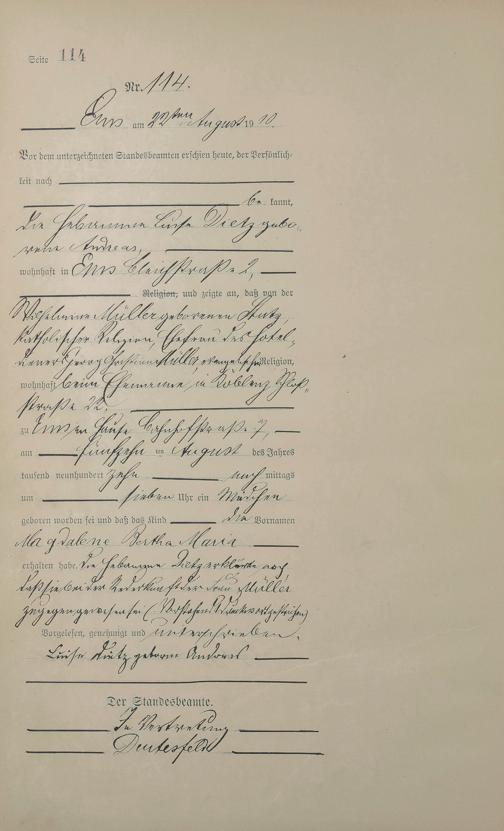 Seite 114
Nr. 114.
Ems am 22ten August 1910.
Vor dem unterzeichneten Standesbeamten erschien heute, der Persönlich-
keit nach
be kannt,
die Hebamme Luise Dietz gebo-
rene Andreas,
wohnhaft in Ems Bleichstraße 2,
Religion, und zeigte an, daß von der
Wilhelmine Müller geborenen
katholischer Religion, Ehefrau des Hotel-
dieners Georg Christian Müller evangelischer Religion,
wohnhaft beim Ehemanne, in Koblenz Schloß-
straße 22,
zu Ems im Hause Bahnhofstraße 7,
am fünfzehn ten August des Jahres
tausend neunhundert zehn nach mittags
um sieben Uhr ein Mädchen
geboren worden sei und daß das Kind die Vornamen
Magdalene Bertha Maria
erhalten habe. Die Hebamme Dietz erklärte noch
daß sie bei der Niederkunft der Frau Müller
zugegen gewesen sei (Vorstehend 1 Druckwort gestrichen)
Vorgelesen, genehmigt und unterschrieben.
Luise Dietz geborene Andreas
Der Standesbeamte.
In Vertretung